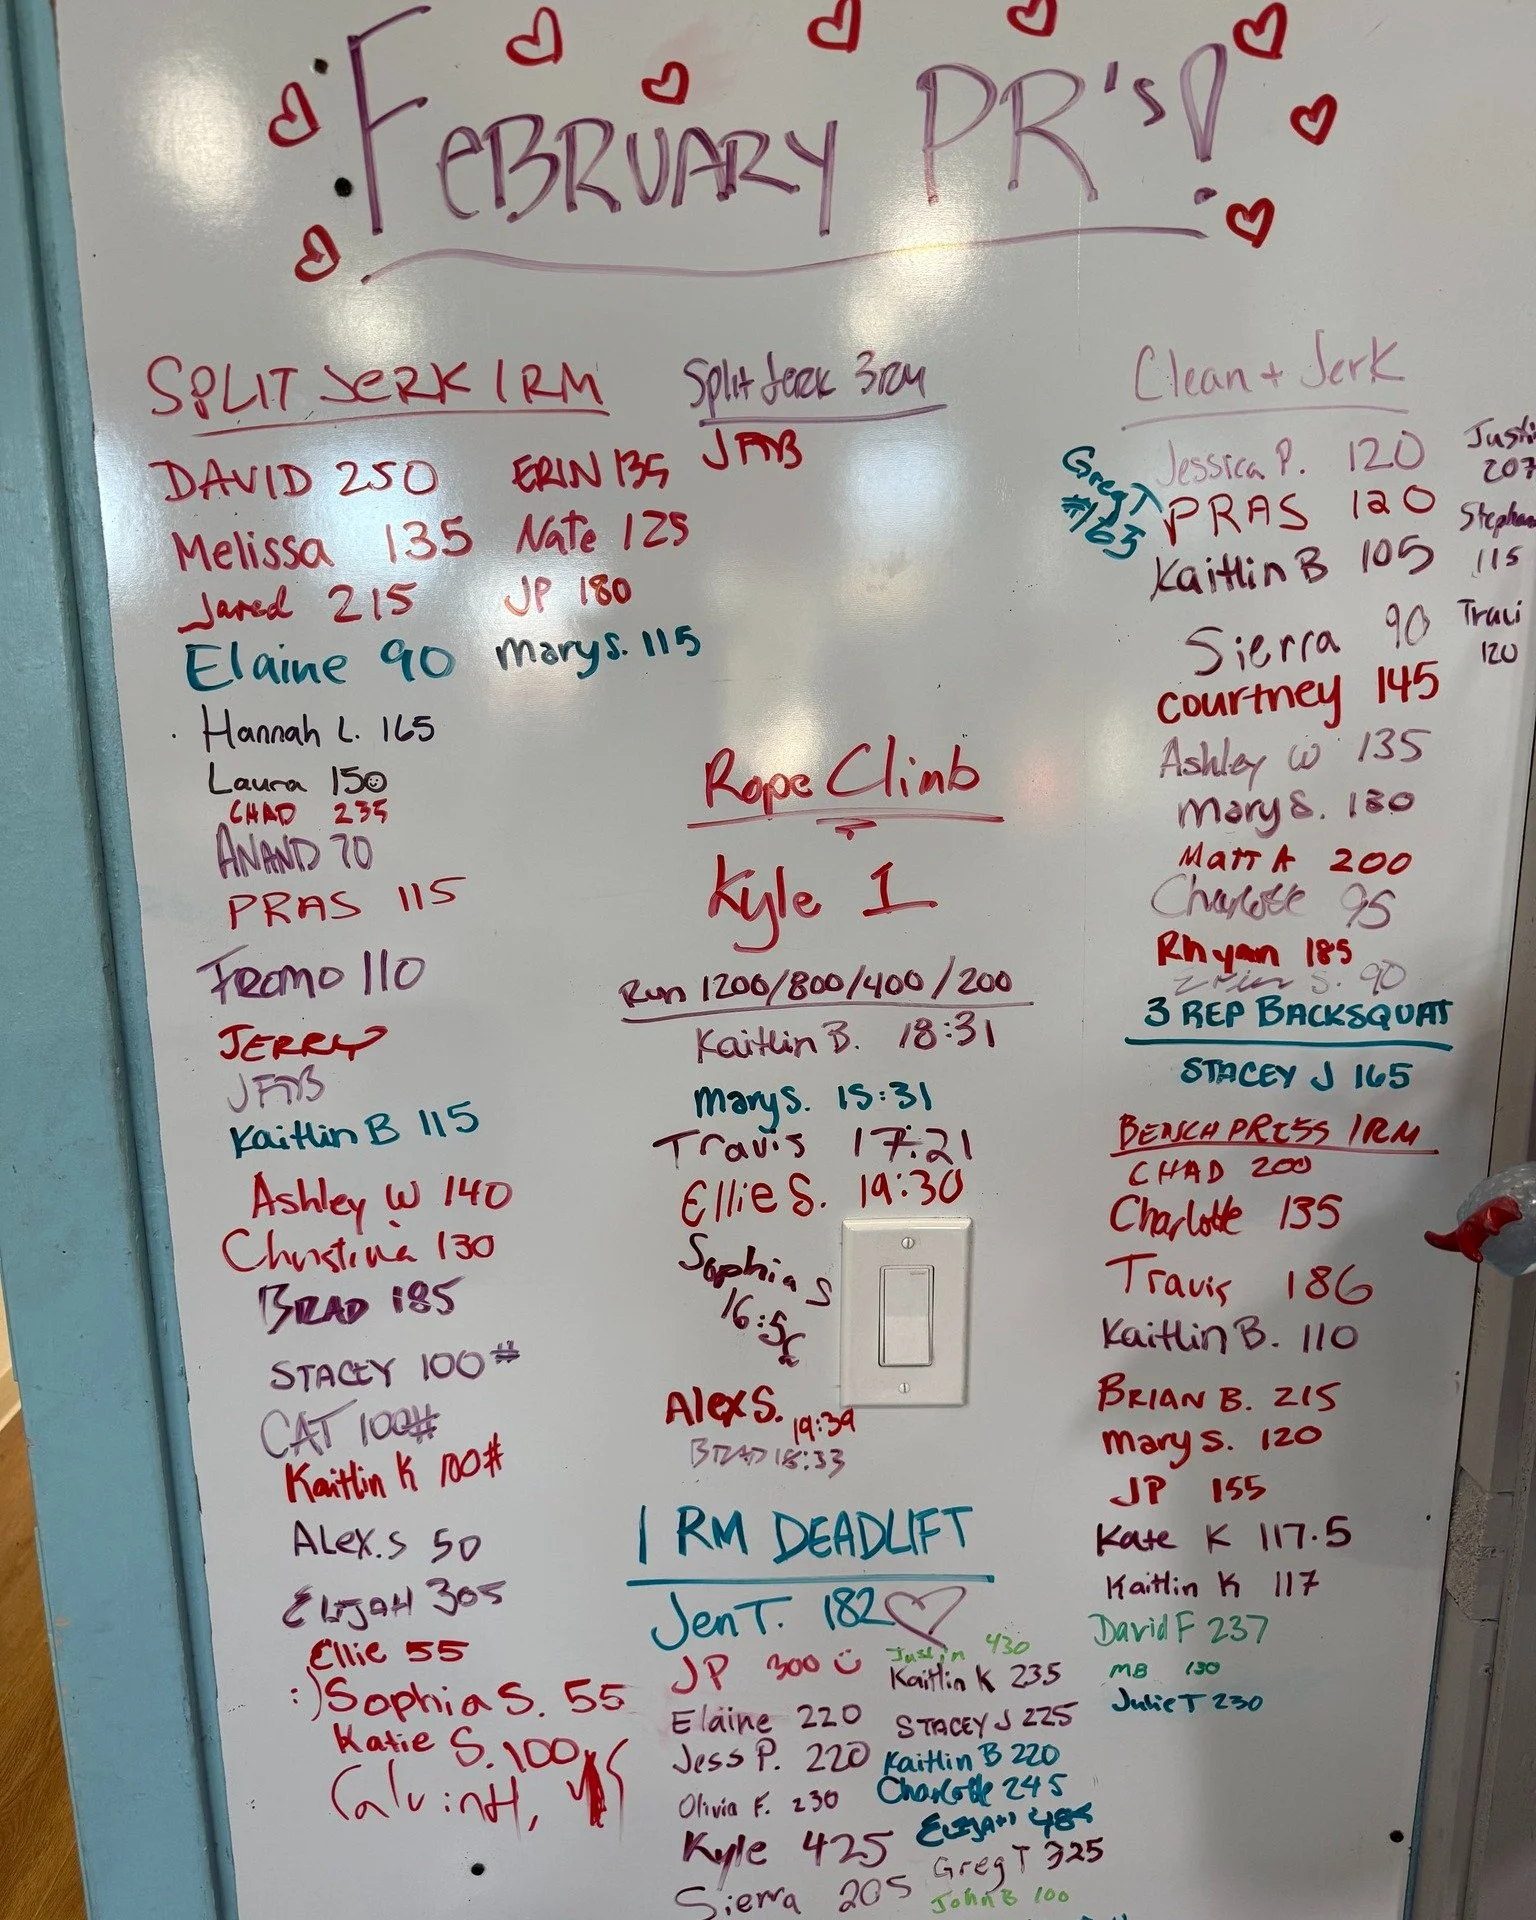 FeBRUARY PR's!
SPLIT JERK 1RM
DAVID 250
ERIN 135
Melissa 135
Nate 125
Jared 215
JP 180
Elaine 90
Mary S. 115
Hannah L. 165
Laura 150
CHAD 235
ANAND 70
PRAS 115
Fromo 110
JERRY
JFTB
Kaitlin B 115
Ashley W 140
Christina 130
BRAD 185
STACEY 100#
CAT 100#
Kaitlin K 100#
ALex.S 50
ELIJAH 305
Ellie 55
:) Sophia S. 55
Katie S. 100
Calvin H,
Split Jerk 3RM
JFTB
Rope Climb
Kyle 1
Run 1200/800/400/200
Kaitlin B. 18:31
Mary S. 15:31
Travis 17:21
Ellie S. 19:30
Sophia S
16:5
Alex S. 19:39
BRAD
1 RM DEADLIFT
Jen T. 182
JP 300
Justin 430
Kaitlin K 235
Elaine 220
STACEY J 225
Jess P. 220
Kaitlin B 220
Olivia F. 230
Charlotte 245
Kyle 425
ELIJAH
Greg T 325
Sierra 205
John B 100
Clean + Jerk
Jessica P. 120
Greg T
#165
PRAS 120
Kaitlin B 105
Sierra 90
Courtney 145
Ashley W 135
Mary S. 130
Matt A 200
Charlotte 95
Rhyan 185
S. 90
Justi
207
Stepha
115
Traci
120
3 REP BACKSQUAT
STACEY J 165
BENCH PRESS 1RM
CHAD 200
Charlotte 135
Travis 186
Kaitlin B. 110
BRIAN B. 215
Mary S. 120
JP 155
Kate K 117.5
Kaitlin K 117
David F 237
MB 130
Julie T 230